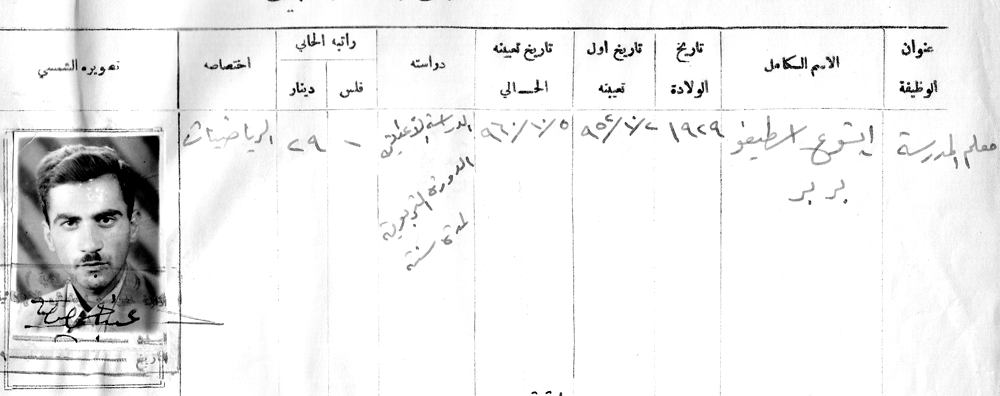 عنوان الوظيفة
الاسم الكامل
تاريخ الولادة
تاريخ اول تعيينه
تاريخ تعيينه الحالي
دراسته
راتبه الحالي
فلس
دينار
اختصاصه
تصويره الشمسي
معلم المدرسة
ايشوع اسطيفو
بربر
١٩٢٩
٩٦٠/١٠/٥
الدورة التربوية
لمدة سنة
-
٢٩
الرياضيات